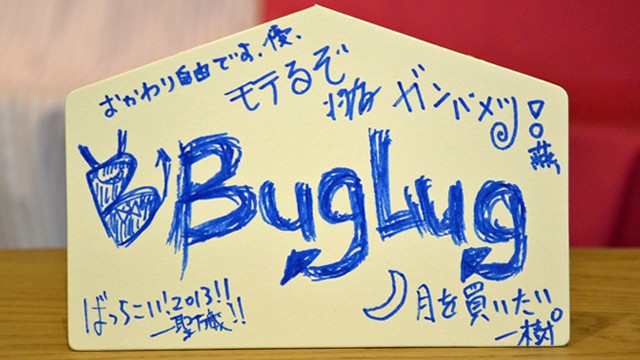 おかわり自由です。優。
モテるぞ
将海
ガンバメツ!。
燕
BugLug
ばっちこい!2013!!
一聖!!
月を買いたい
一樹。